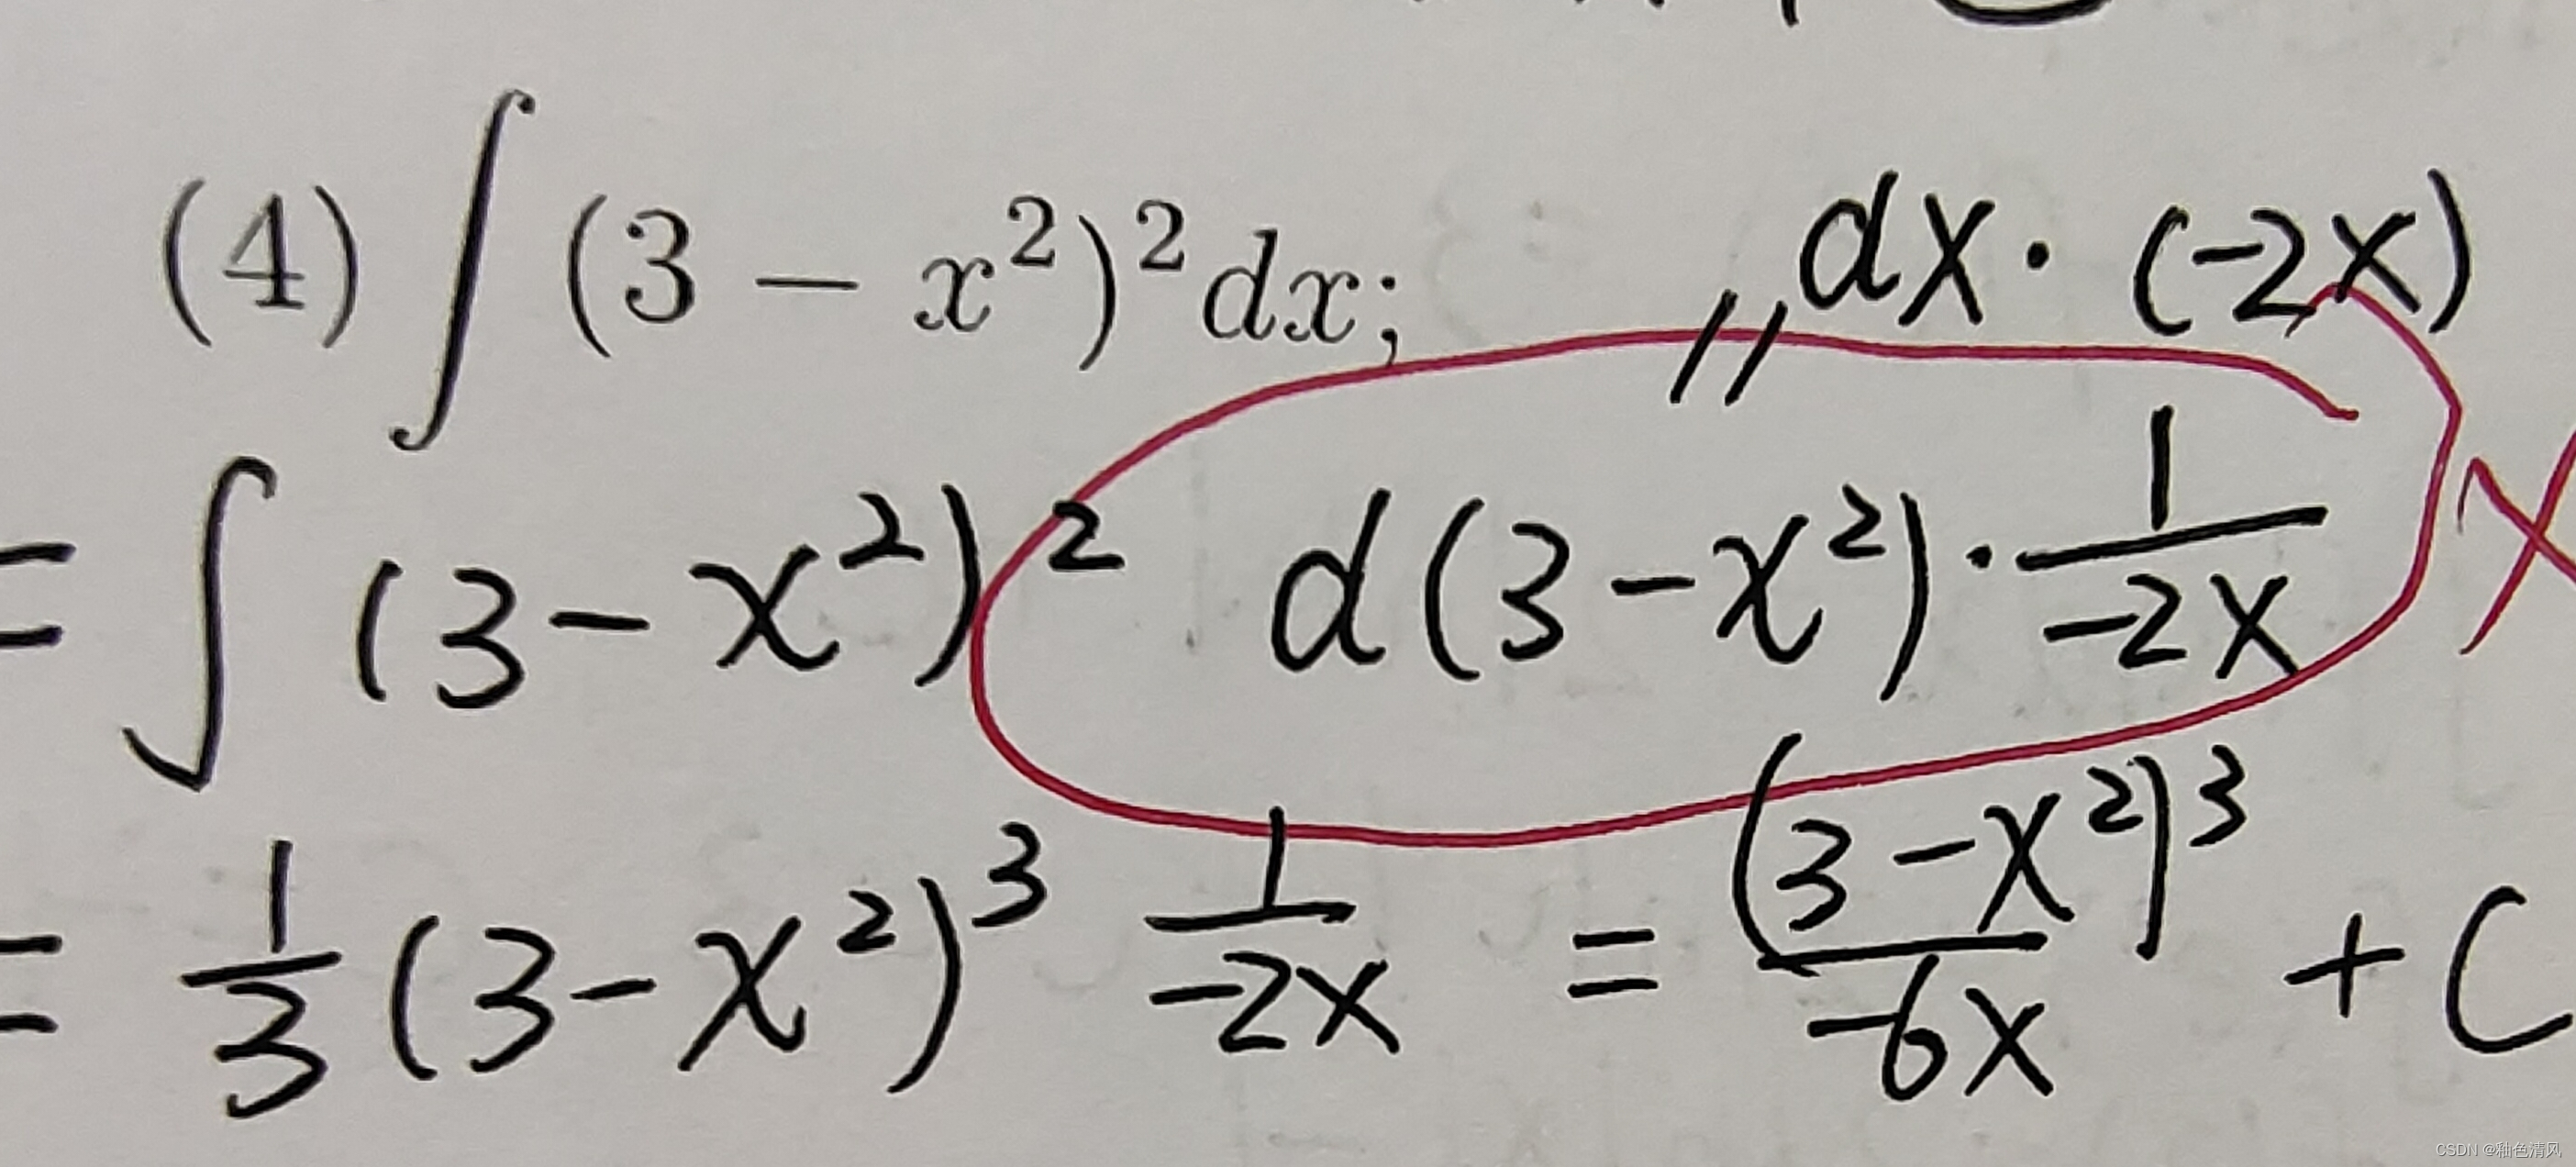 (4) ∫ (3 − x²)² dx;
dx · (-2x)
//
= ∫ (3 − x²)² d(3 − x²) · 1/(-2x)
= 1/3 (3 − x²)³ 1/(-2x) = (3 − x²)³/(-6x) + C
CSDN @釉色清风